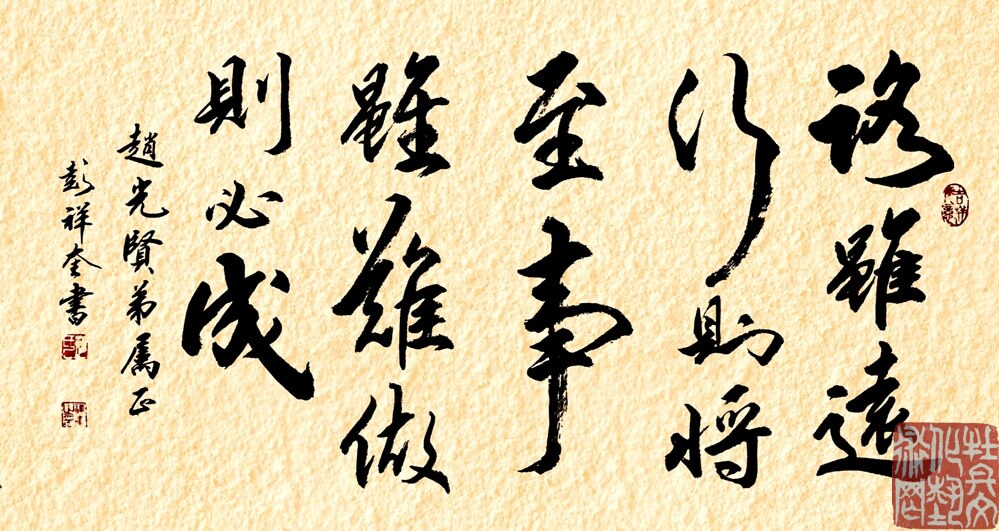 路雖遠
行則將
至事
雖難做
則必成
趙光賢弟属正
彭祥奎書